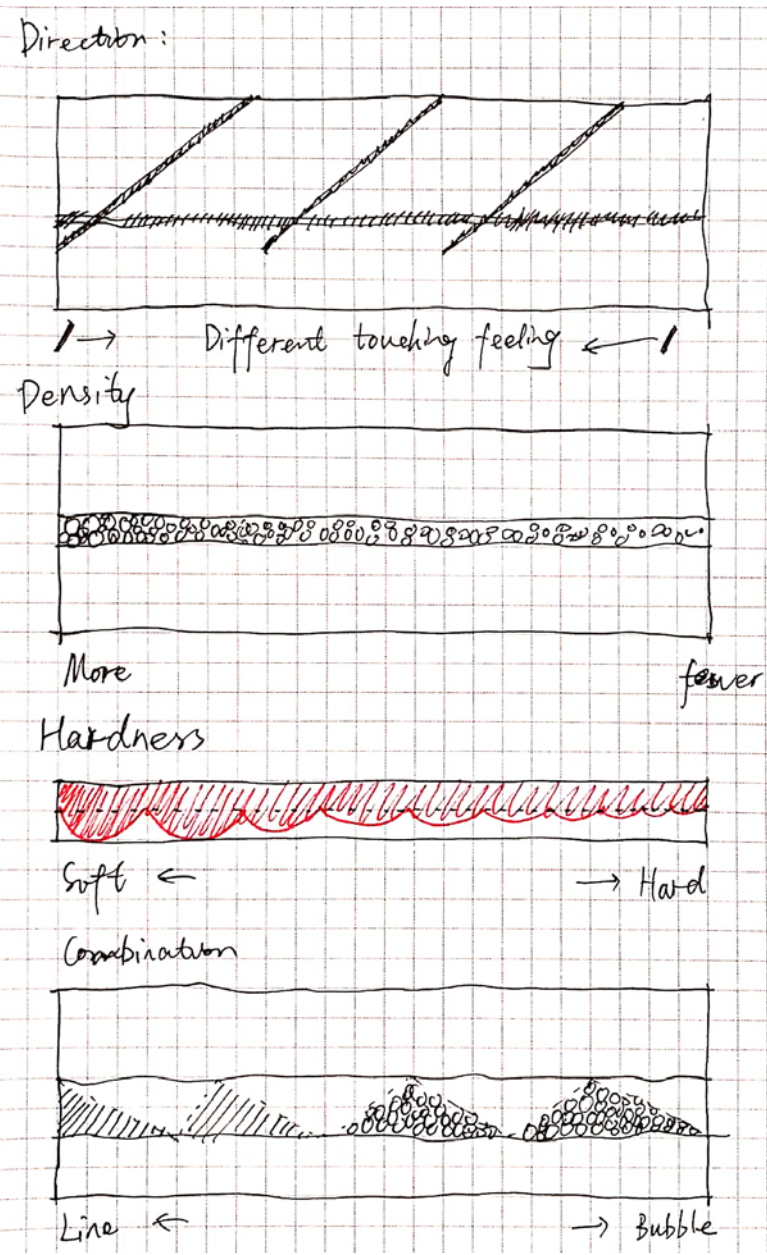 Direction:
→ Different touching feeling ←
Density
More fewer
Hardness
Soft ← → Hard
Combination
Line ← → Bubble